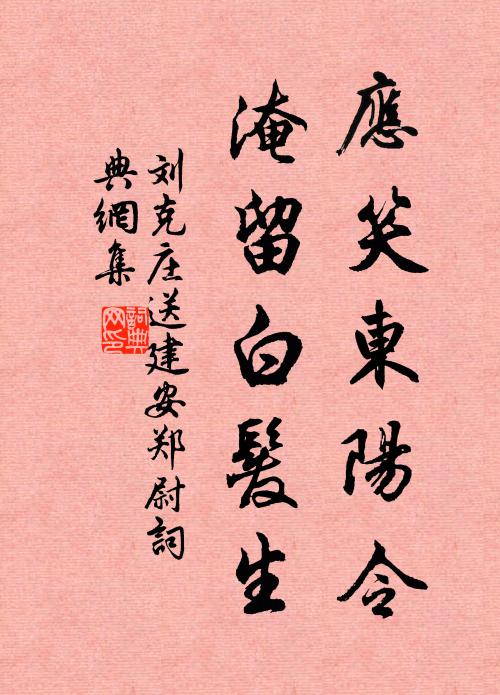 應笑東陽令
淹留白髮生
刘克庄送建安郑尉詞
典網集
詞典
网印